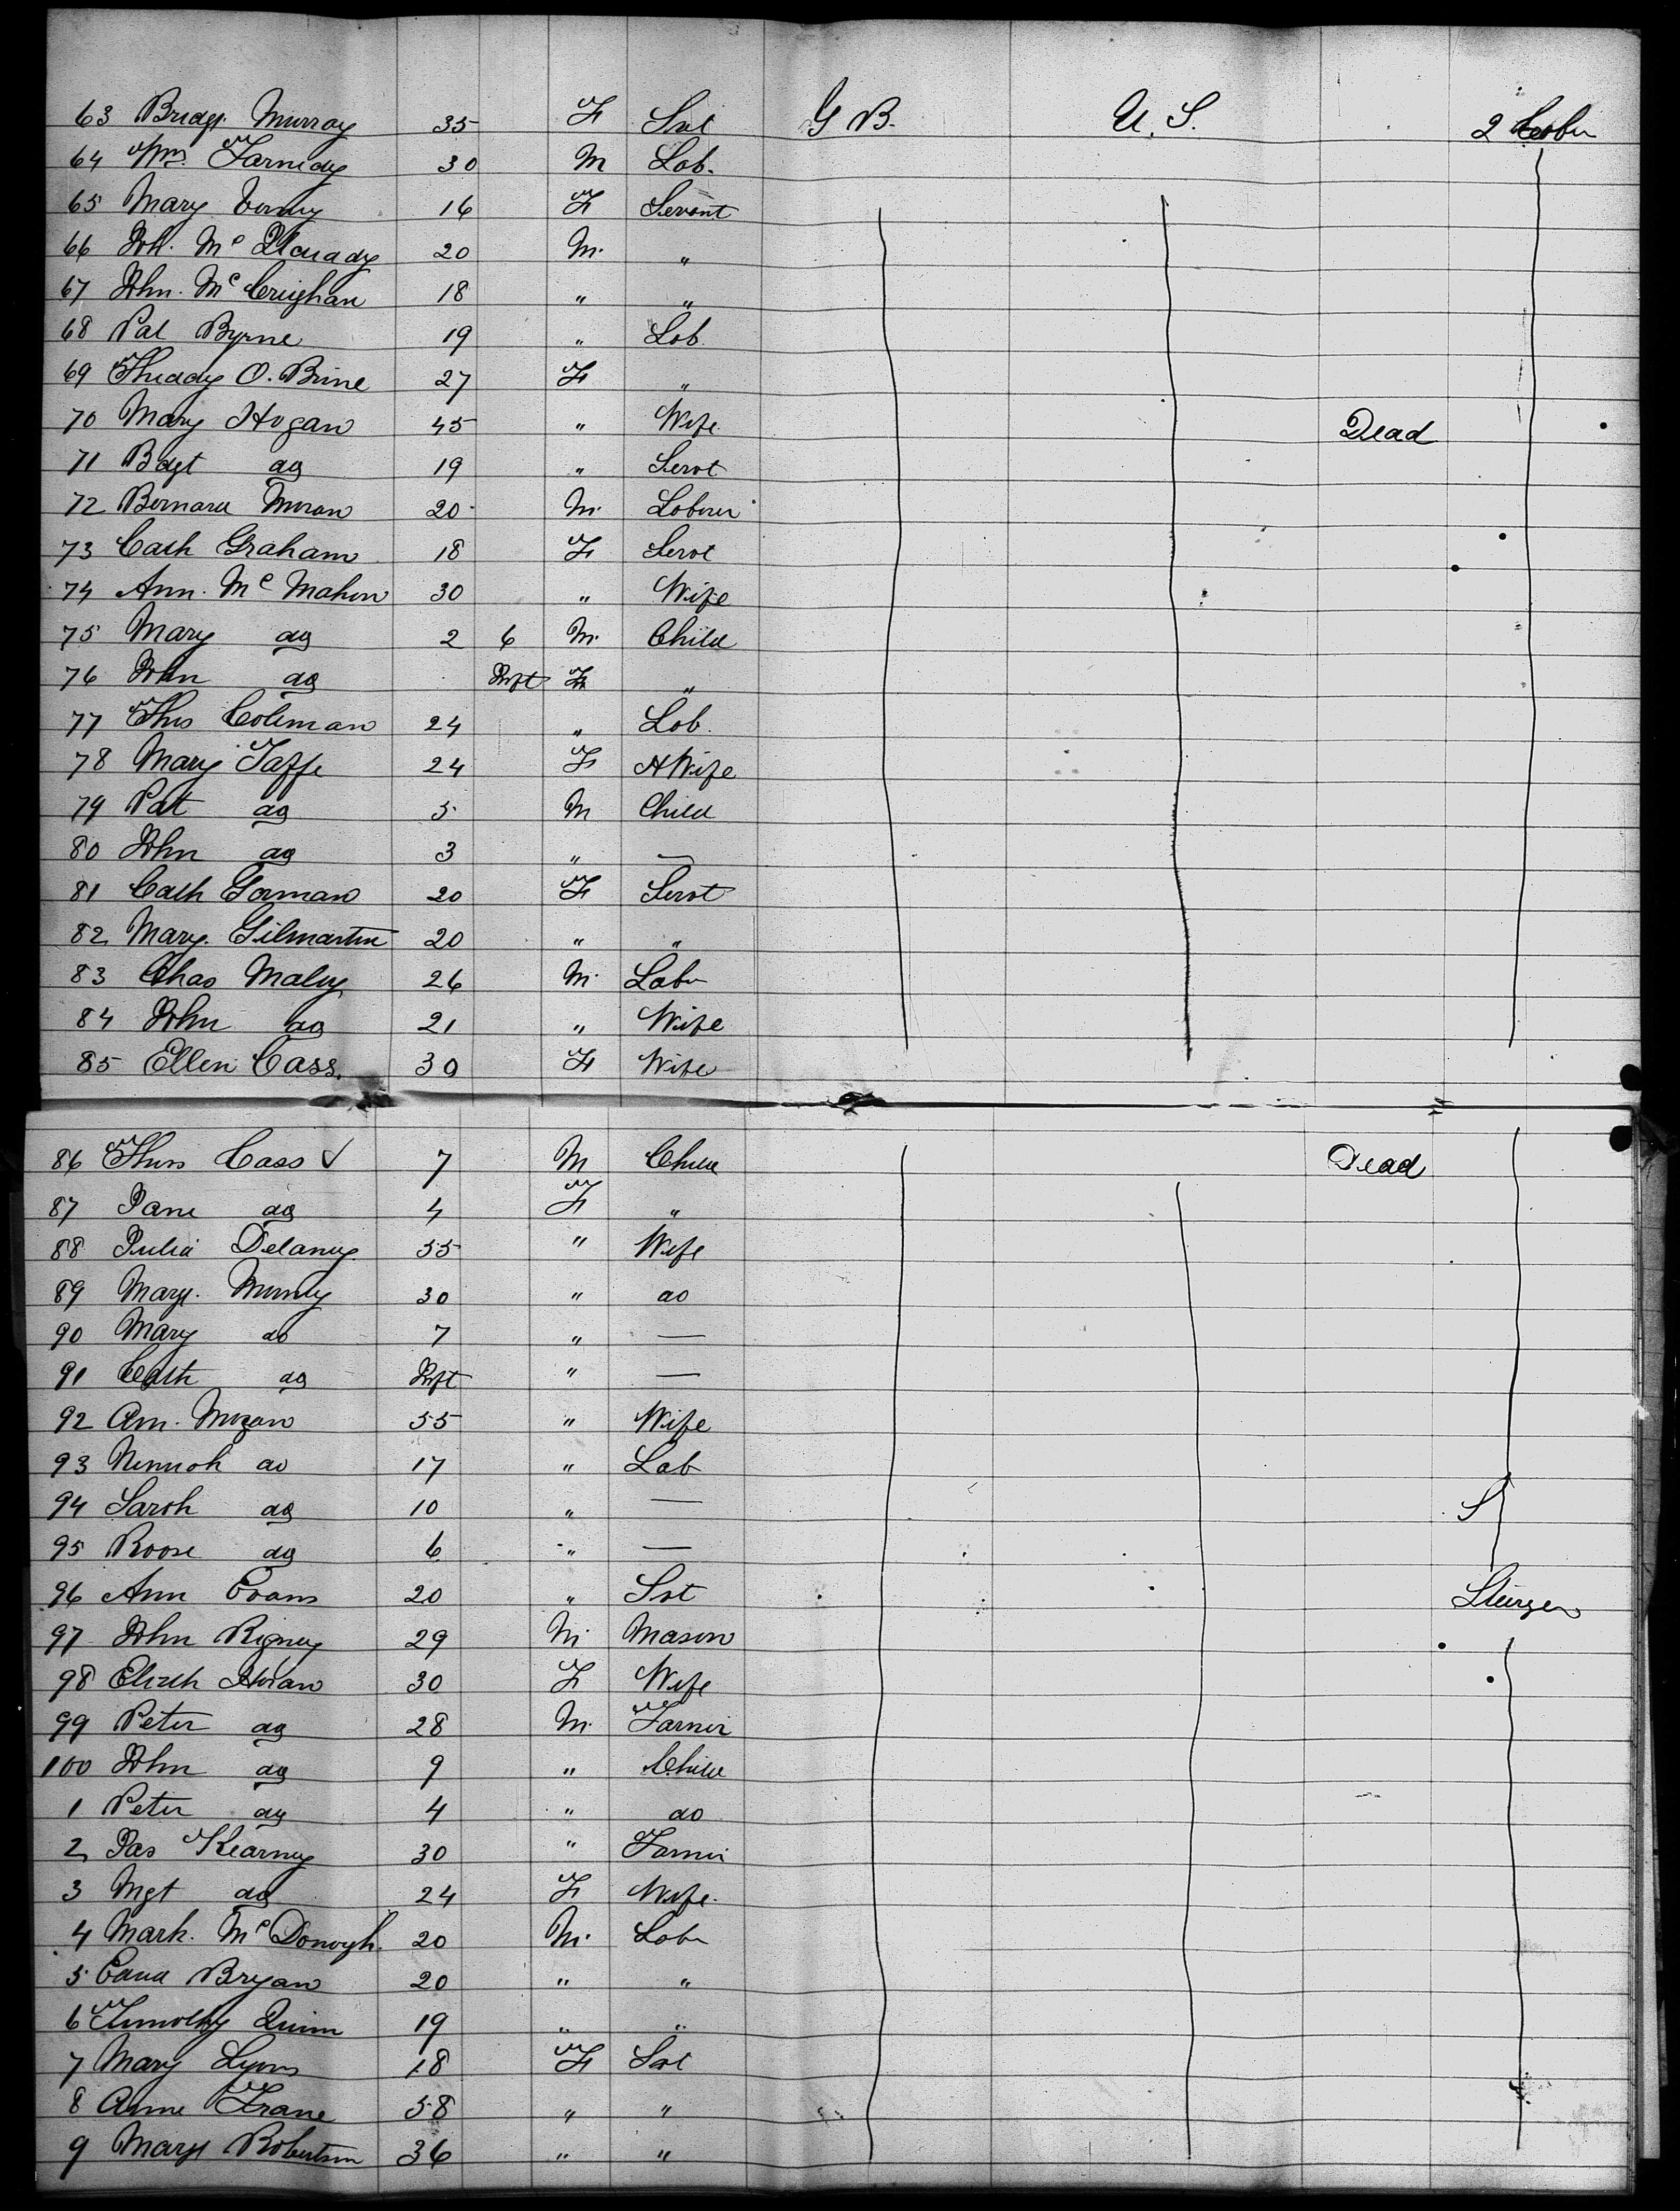 63 Bridgt. Murray 35 F Svt G B. U. S. 2 Cabin
64 Wm. 30 M Lab.
65 Mary 16 F Servant
66 Mc 20 M. "
67 John. Mc Creighan 18 " "
68 Pat Byrne 19 " Lab.
69 Thuddy O. Brine 27 F "
70 Mary Hogan 45 " Wife Dead
71 Bdgt do 19 " Servt
72 Bernard Moran 20 M. Laborer
73 Cath Graham 18 F Servt
74 Ann. Mc Mahon 30 " Wife
75 Mary do 2 6 M. Child
76 John do Inft F "
77 Thos Coleman 24 " Lab.
78 Mary Taffe 24 F H Wife
79 Pat do 5 M Child
80 John do 3 " —
81 Cath Gorman 20 F Servt
82 Mary. Gilmartin 20 " "
83 Chas Maley 26 M. Labr
84 John do 21 " Wife
85 Ellen Cass. 30 F Wife
86 Thos Cass √ 7 M Child Dead
87 Jane do 4 F "
88 Julia Delaney 55 " Wife
89 Margt. 30 " do
90 Mary do 7 " —
91 Cath do Inft " —
92 Ann. Moran 55 " Wife
93 do 17 " Lab
94 Sarah do 10 " — S
95 Roose do 6 " —
96 Ann Evans 20 " Svt Steerge
97 John Rigney 29 M. Mason
98 Elizth Horan 30 F Wife
99 Peter do 28 M. Farmer
100 John do 9 " Child
1 Peter do 4 " do
2 Jas Kearney 30 " Farmer
3 Mgt do 24 F Wife.
4 Mark. Mc Donogh. 20 M. Labr
5 Edwd Bryan 20 " "
6 Timothy Quinn 19 " "
7 Mary Lyons 18 F Svt
8 Anne Frane 58 " "
9 Margt Robertson 36 " "